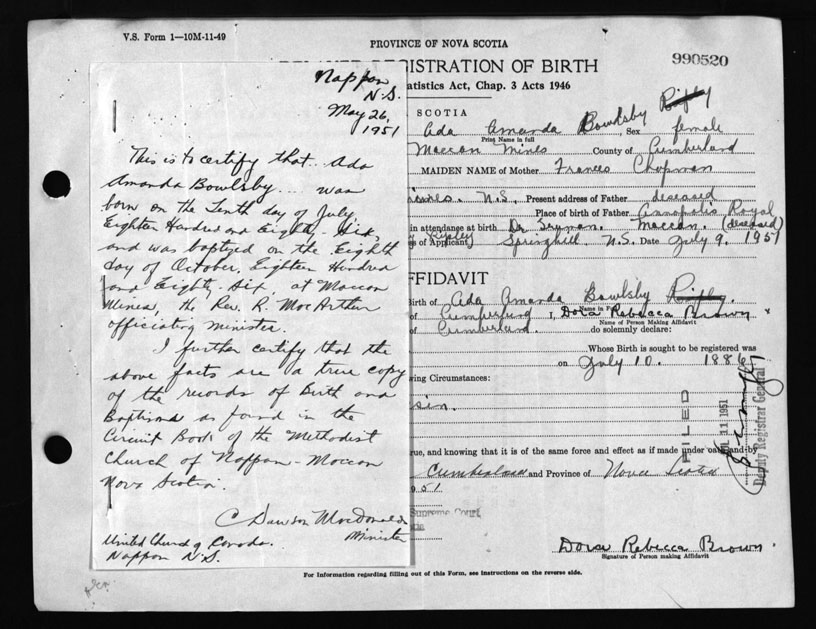 V.S. Form 1—10M-11-49
PROVINCE OF NOVA SCOTIA
990520
REGISTRATION OF BIRTH
Statistics Act, Chap. 3 Acts 1946
Nappan
N.S.
May 26,
1951
This is to certify that Ada
Amanda Bowlsby... was
born on the Tenth day of July,
Eighteen Hundred and Eighty-Six,
and was baptized on the Eighth
day of October, Eighteen Hundred
and Eighty-Six, at Maccan
Mines, the Rev. R. MacArthur
officiating minister.
I further certify that the
above facts are a true copy
of the records of Birth and
Baptisms as found in the
Circuit Book of the Methodist
Church of Nappan-Maccan
Nova Scotia.
C Dawson MacDonald
Minister
United Church of Canada.
Nappan N.S.
SCOTIA
Ada Amanda Bowlsby Sex female
Print Name in full
Maccan Mines County of Cumberland
MAIDEN NAME of Mother Frances Chapman
Mines. N.S. Present address of Father deseased
Place of birth of Father Annapolis Royal
in attendance at birth Dr Maccan. (deseased)
of Applicant Springhill, N.S. Date July 9, 1951
FFIDAVIT
Birth of Ada Amanda Bowlsby
Name in Full
of Cumberland I, Dora Rebecca Brown
Name of Person Making Affidavit
of Cumberland. do solemnly declare:
Whose Birth is sought to be registered was
on July 10. 1886
ing Circumstances:
sin.
rue, and knowing that it is of the same force and effect as if made under oath and by
Cumberland and Province of Nova Scotia
951
Supreme Court
FILED
JUL 11 1951
Deputy Registrar General
Dora Rebecca Brown
Signature of Person making Affidavit
For Information regarding filling out of this Form, see instructions on the reverse side.